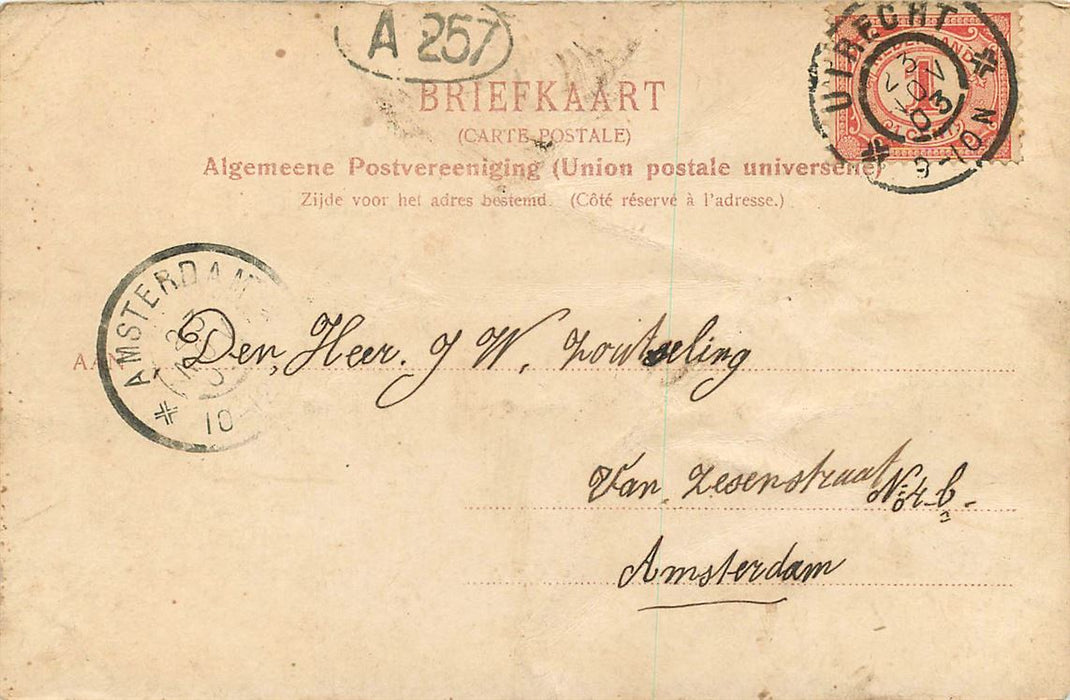 A 257
UTRECHT
23 NOV 03
9-10N
NEDERLAND
1
BRIEFKAART
(CARTE POSTALE)
Algemeene Postvereeniging (Union postale universelle)
Zijde voor het adres bestemd. (Côté réservé à l'adresse.)
AMSTERDAM
10-12
AAN
Den Heer. J W. Zoutseling
Van Zesenstraat No 4 b.
Amsterdam